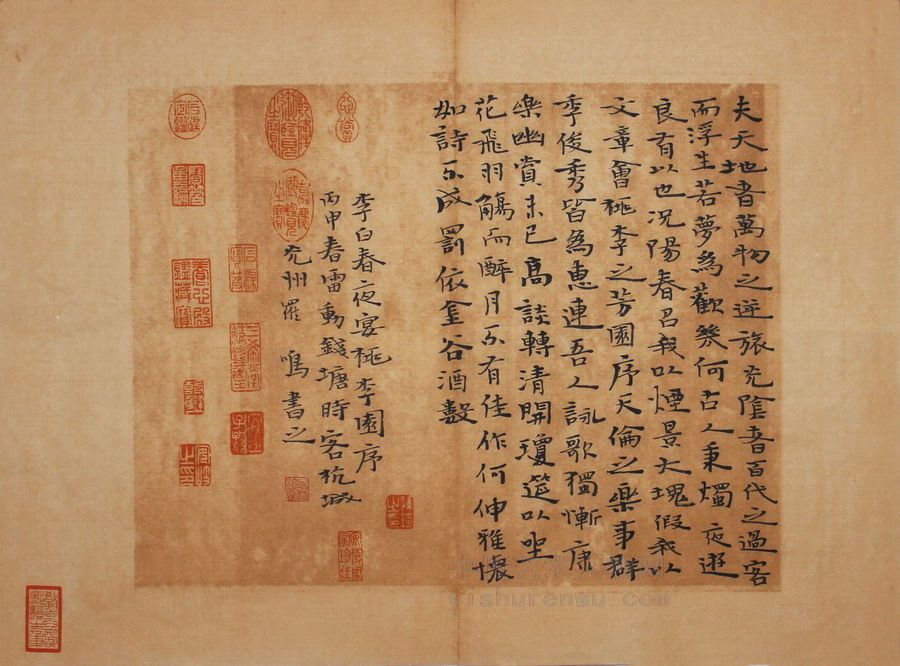 夫天地者萬物之逆旅光陰者百代之過客
而浮生若夢為歡幾何古人秉燭夜遊
良有以也况陽春召我以煙景大塊假我以
文章會桃李之芳園序天倫之樂事群
季俊秀皆為惠連吾人詠歌獨慚康
樂幽賞未已高談轉清開瓊筵以坐
花飛羽觴而醉月不有佳作何伸雅懷
如詩不成罰依金谷酒數
李白春夜宴桃李園序
丙申春雷動錢塘時客杭城
兗州羅鳴書之
乾隆御覽之寶
嘉慶御覽之寶
石渠寶笈
三希堂精鑑璽
宜子孫
養心殿鑒藏寶
yishurenwu.com